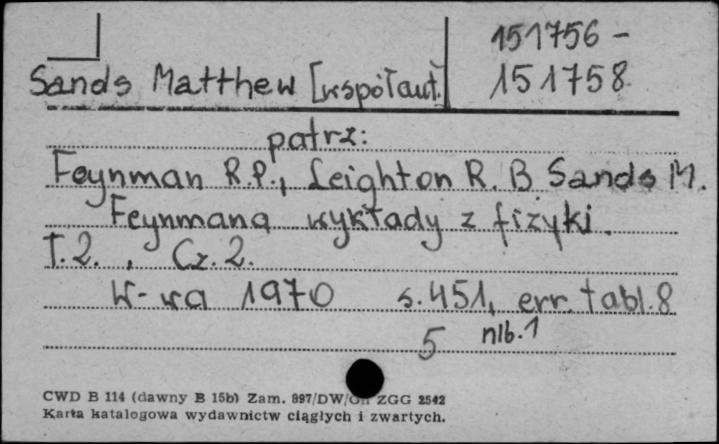 151756 -
Sands Matthew [współaut.]
151758
patrz:
Feynman R.P., Leighton R. B. Sands M.
Feynmana wykłady z fizyki.
T.2. , Cz. 2.
W-wa 1970 s. 451, err. tabl. 8
5 nlb. 1
CWD B 114 (dawny B 15b) Zam. 897/DW/ ZGG 2542
Karta katalogowa wydawnictw ciągłych i zwartych.